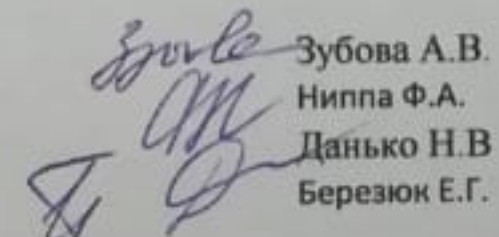 Зубова А.В.
Ниппа Ф.А.
Данько Н.В
Березюк Е.Г.